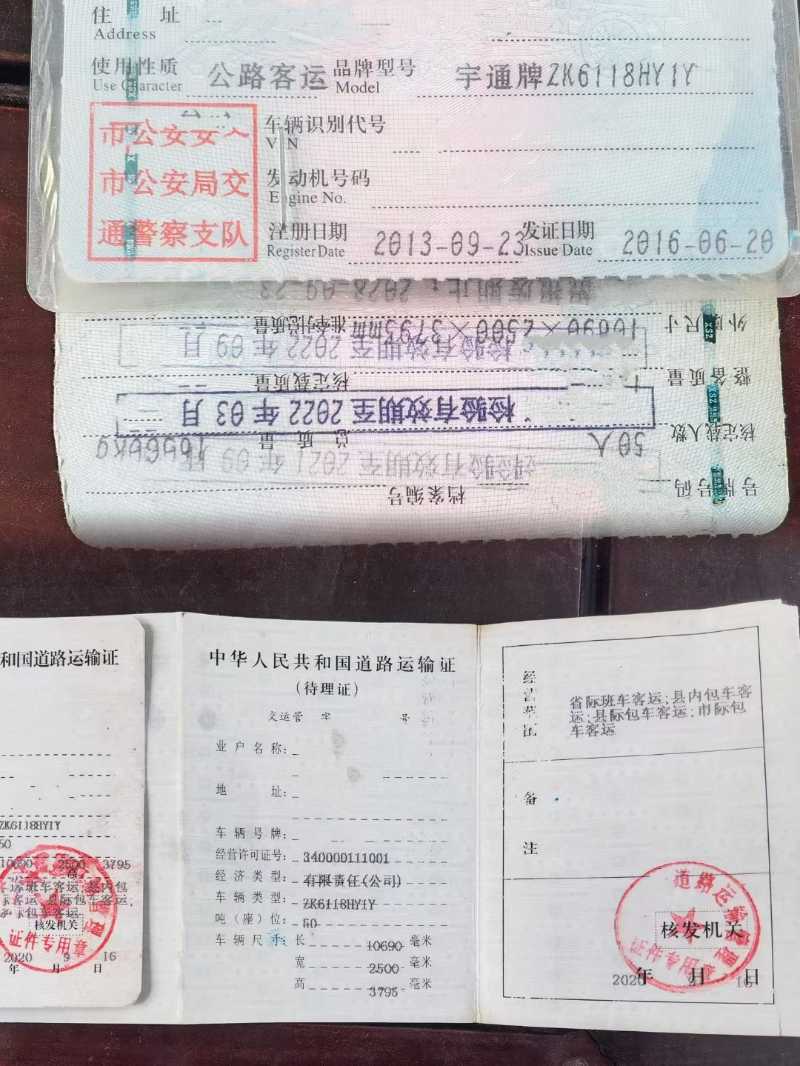 住 址
Address
使用性质 公路客运 品牌型号 宇通牌ZK6118HY1Y
Use Character Model
车辆识别代号
VIN
市公安局交
通警察支队
发动机号码
Engine No.
注册日期 2013-09-23 发证日期 2016-06-20
Register Date Issue Date
号牌号码
档案编号
核定载人数 50人
总质量
检验有效期至2021年09月
整备质量
核定载质量
检验有效期至2022年03月
外廓尺寸
准牵引总质量
检验有效期至2022年09月
和国道路运输证
ZK6118HY1Y
50
2500 3795
核发机关
证件专用章
2020 9 16
年 月 日
中华人民共和国道路运输证
(待理证)
交运管 字 号
业户名称:
地 址:
车辆号牌:
经营许可证号: 340000111001
经济类型: 有限责任(公司)
车辆类型: ZK6118HY1Y
吨(座)位: 50
车辆尺寸:长 10690 毫米
宽 2500 毫米
高 3795 毫米
经营范围
省际班车客运;县内包车客
运;县际包车客运;市际包
车客运
备
注
道路运输管理
核发机关
证件专用章
2020年 月16日